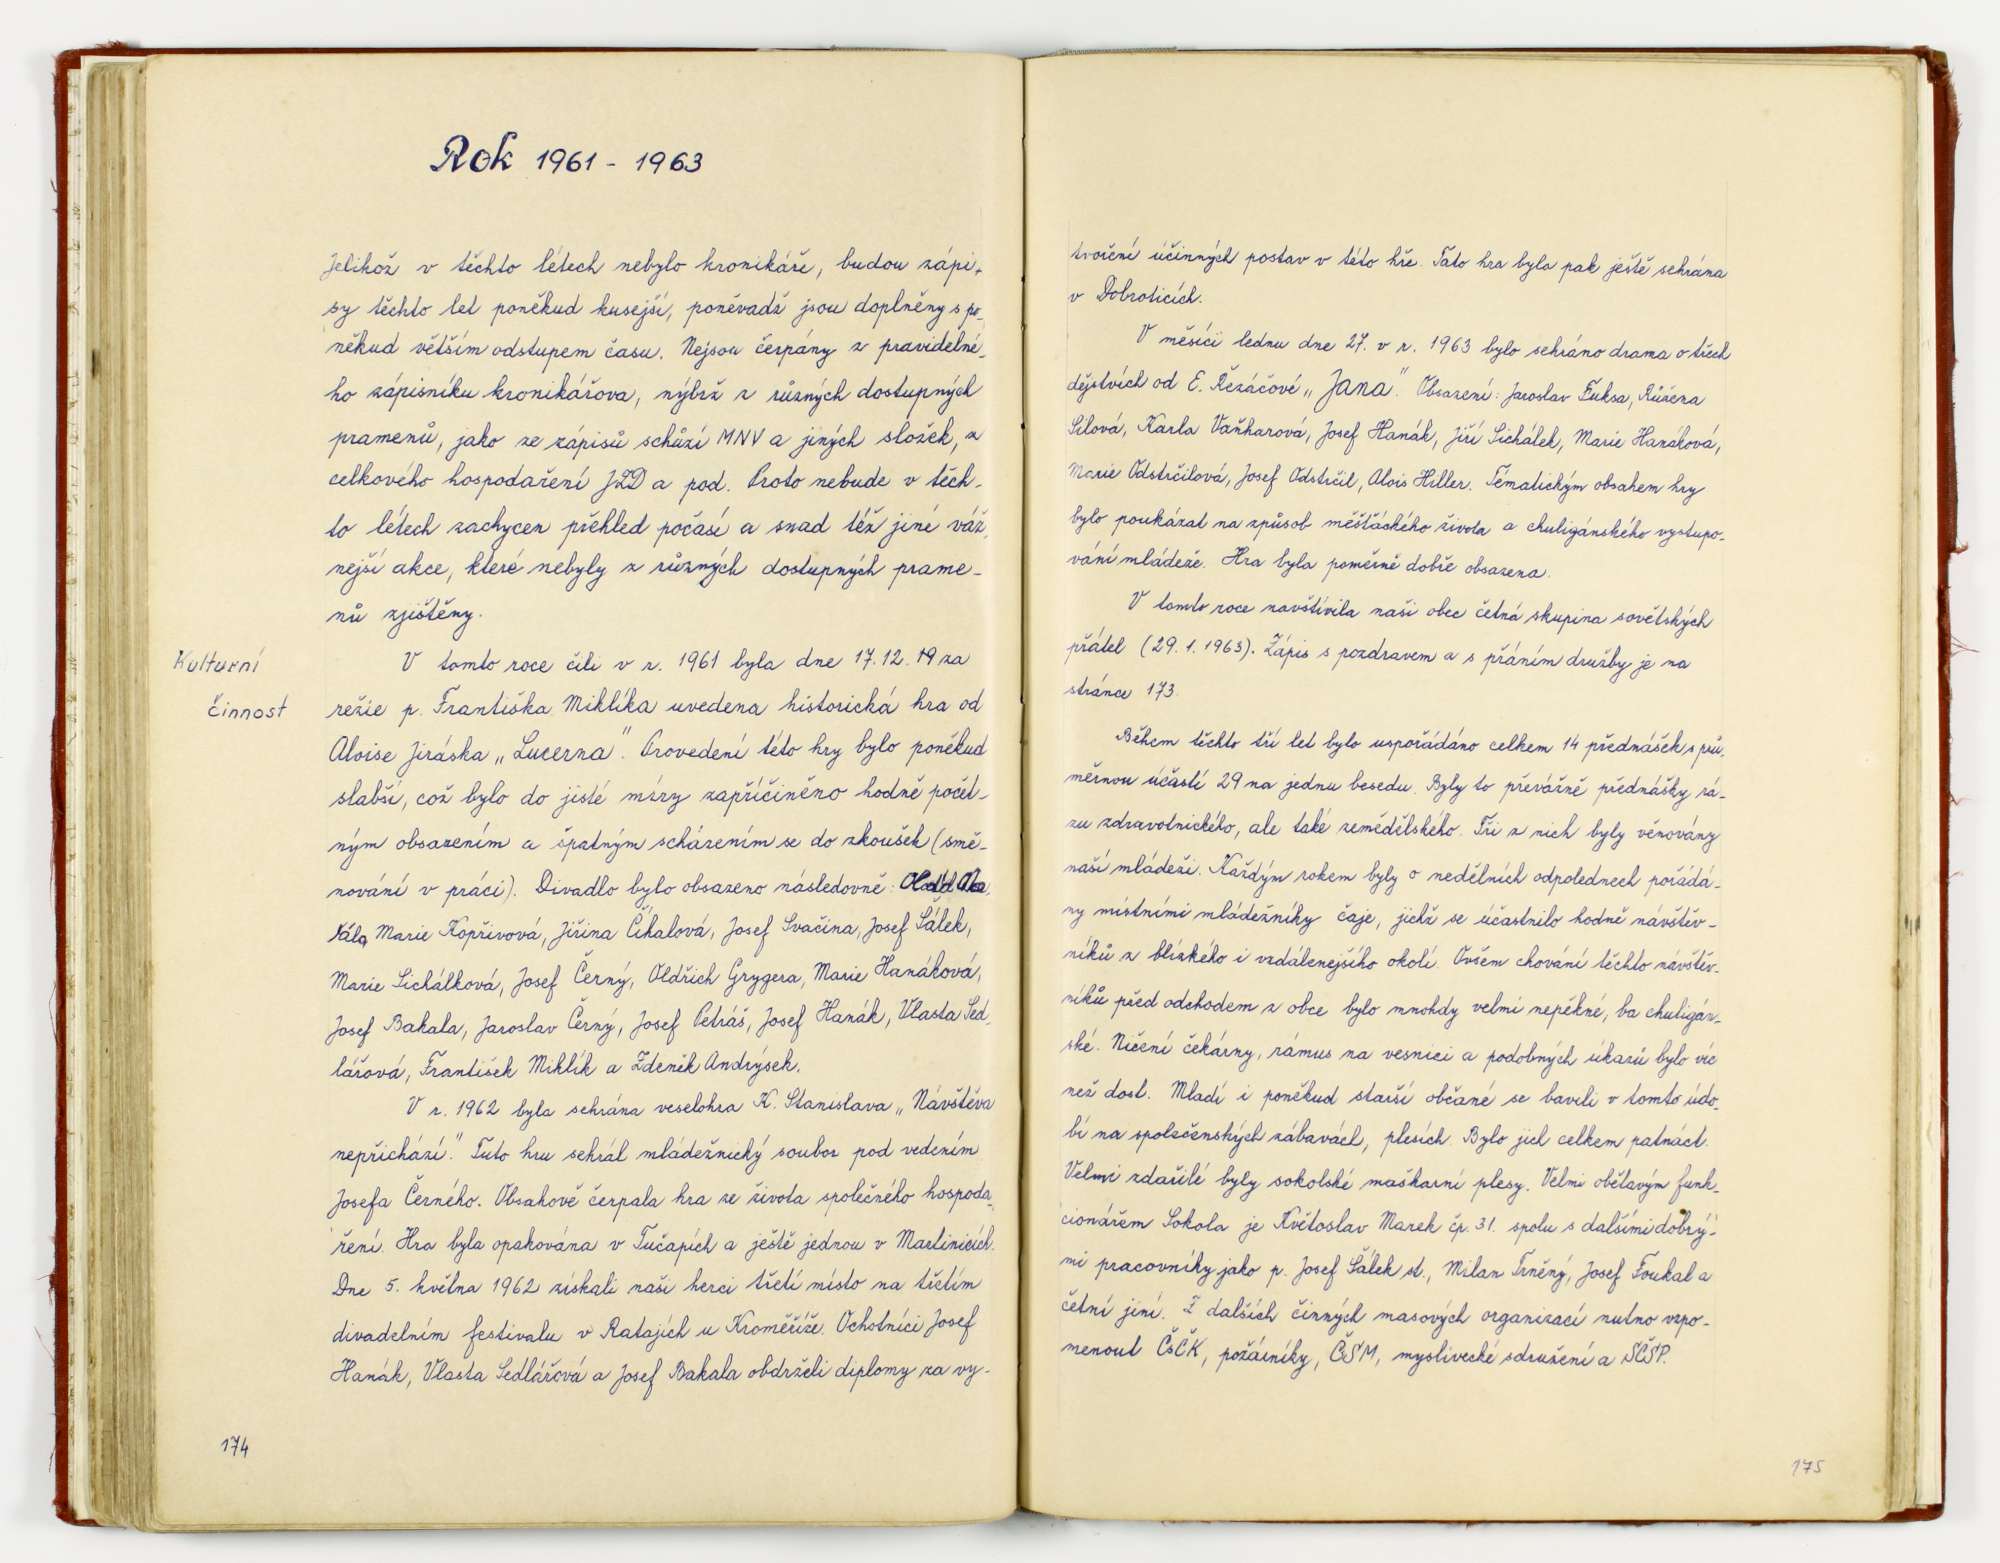 Rok 1961 - 1963
Jelikož v těchto létech nebylo kronikáře, budou zápi-
sy těchto let poněkud kusejší, poněvadž jsou doplněny s po-
někud větším odstupem času. Nejsou čerpány z pravidelné-
ho zápisníku kronikářova, nýbrž z různých dostupných
pramenů, jako ze zápisů schůzí MNV a jiných složek, z
celkového hospodaření JZD a pod. Proto nebude v těch-
to létech zachycen přehled počasí a snad též jiné váž-
nejší akce, které nebyly z různých dostupných prame-
nů zjištěny.
Kulturní
činnost
V tomto roce čili v r. 1961 byla dne 17.12.19 za
režie p. Františka Miklíka uvedena historická hra od
Aloise Jiráska „Lucerna". Provedení této hry bylo poněkud
slabší, což bylo do jisté míry zapříčiněno hodně počet-
ným obsazením a špatným scházením se do zkoušek (smě-
nování v práci). Divadlo bylo obsazeno následovně:
Marie Kopřivová, Jiřina Číhalová, Josef Svačina, Josef Šálek,
Marie Sichálková, Josef Černý, Oldřich Grygera, Marie Hanáková,
Josef Bakala, Jaroslav Černý, Josef Petráš, Josef Hanák, Vlasta Sed-
lářová, František Miklík a Zdeněk Andrýsek.
V r. 1962 byla sehrána veselohra K. Stanislava „Návštěva
nepřichází". Tuto hru sehrál mládežnický soubor pod vedením
Josefa Černého. Obsahově čerpala hra ze života společného hospoda-
ření. Hra byla opakována v Tučapích a ještě jednou v Martinicích.
Dne 5. května 1962 získali naši herci třetí místo na třetím
divadelním festivalu v Ratajích u Kroměříže. Ochotníci Josef
Hanák, Vlasta Sedlářová a Josef Bakala obdrželi diplomy za vy-
174
tvoření účinných postav v této hře. Tato hra byla pak ještě sehrána
v Dobroticích.
V měsíci lednu dne 27. v r. 1963 bylo sehráno drama o třech
dějstvích od E. Řezáčové „Jana". Obsazení: Jaroslav Fuksa, Růžena
Silová, Karla Vaňharová, Josef Hanák, Jiří Sichálek, Marie Hanáková,
Marie Odstrčilová, Josef Odstrčil, Alois Hiller. Tématickým obsahem hry
bylo poukázat na způsob měšťáckého života a chuligánského vystupo-
vání mládeže. Hra byla poměrně dobře obsazena.
V tomto roce navštívila naši obec četná skupina sovětských
přátel (29. 1. 1963). Zápis s pozdravem a s přáním družby je na
stránce 173.
Během těchto tří let bylo uspořádáno celkem 14 přednášek s prů-
měrnou účastí 29 na jednu besedu. Byly to převážně přednášky rá-
zu zdravotnického, ale také zemědělského. Tři z nich byly věnovány
naší mládeži. Každým rokem byly o nedělních odpolednech pořádá-
ny místními mládežníky čaje, jichž se účastnilo hodně návštěv-
níků z blízkého i vzdálenejšího okolí. Ovšem chování těchto návštěv-
níků před odchodem z obce bylo mnohdy velmi nepěkné, ba chuligán-
ské. Ničení čekárny, rámus na vesnici a podobných úkazů bylo víc
než dost. Mladí i poněkud starší občané se bavili v tomto údo-
bí na společenských zábavách, plesích. Bylo jich celkem patnáct.
Velmi zdařilé byly sokolské maškarní plesy. Velmi obětavým funk-
cionářem Sokola je Květoslav Marek čp. 31. spolu s dalšími dobrý-
mi pracovníky jako p. Josef Šálek st., Milan Trněný, Josef Foukal a
četní jiní. Z dalších činných masových organizací nutno vzpo-
menout ČsČK, požárníky, ČSM, myslivecké sdružení a SČSP.
175